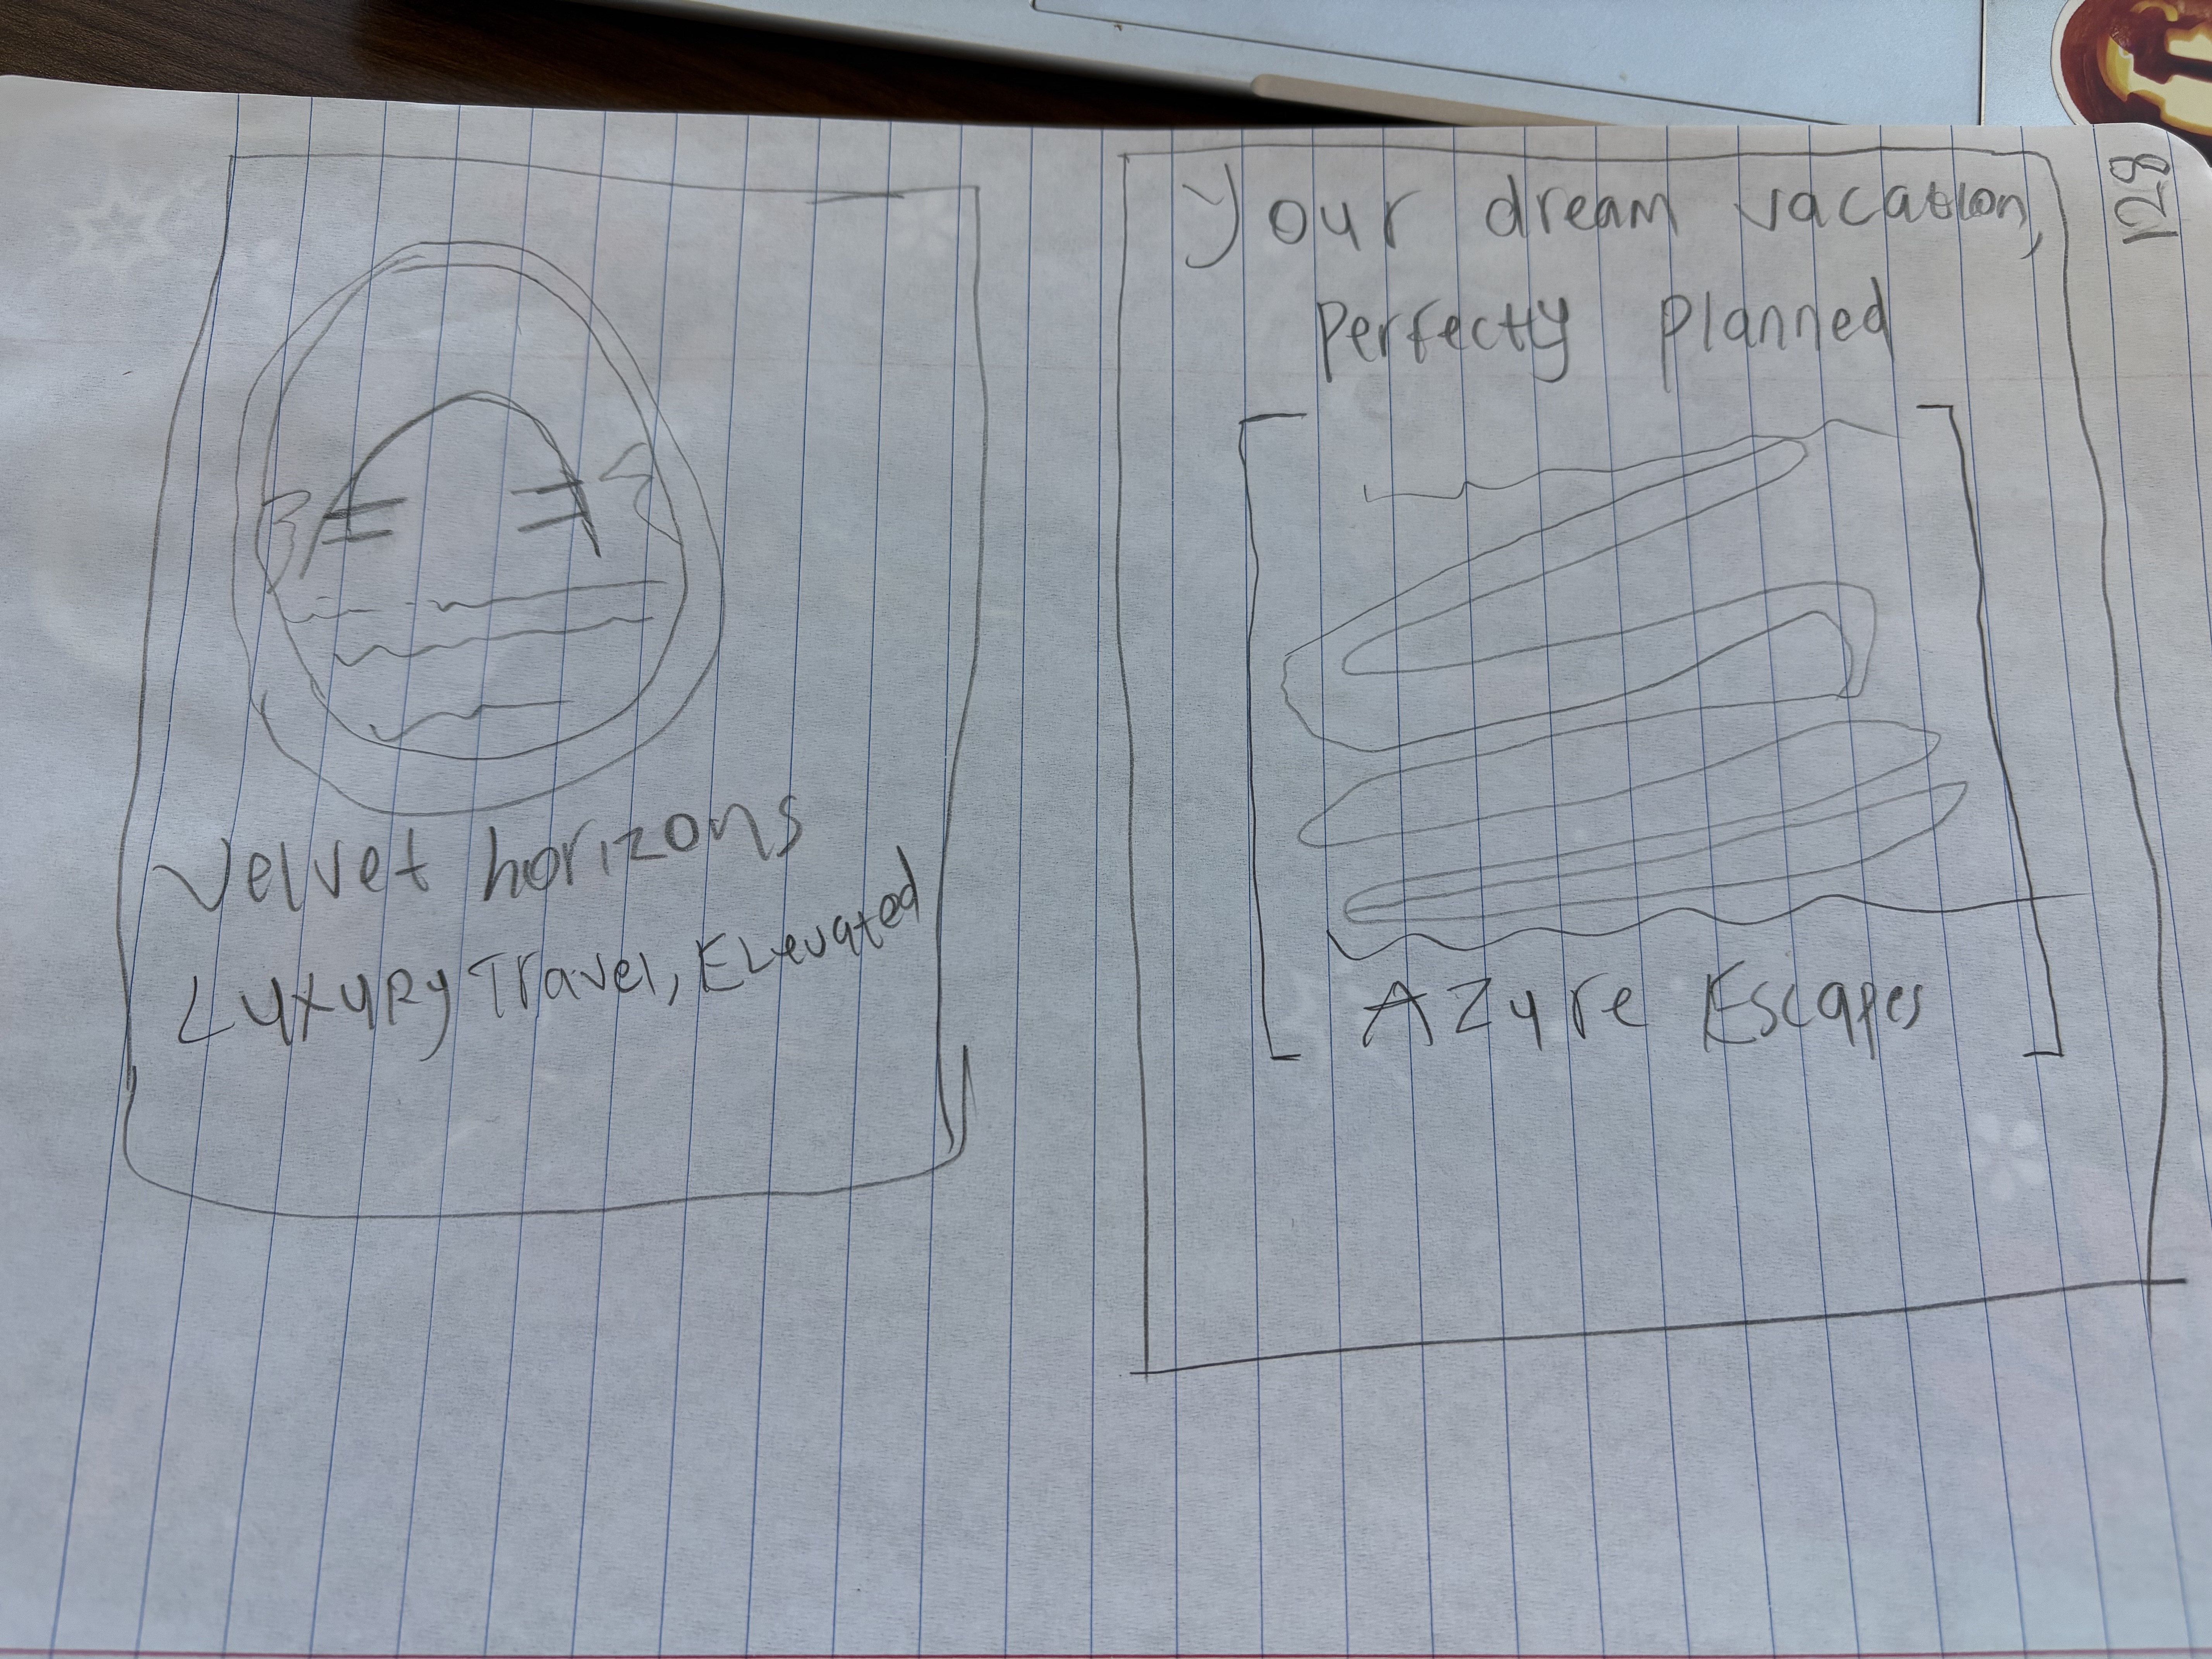 Velvet horizons
Luxury Travel, Elevated
Your dream vacation,
perfectly planned
Azure Escapes
128